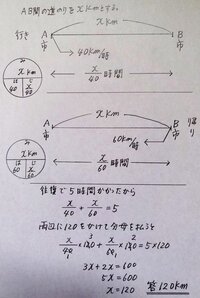 AB間の道のりをxkmとする。
行き
xkm
A市
B市
40km/時
み
xkm
は 40
じ x/40
x/40 時間
xkm
A市
B市
帰り
60km/時
み
xkm
は 60
じ x/60
x/60 時間
往復で5時間かかったから
x/40 + x/60 = 5
両辺に120をかけて分母をはらうと
x/40₁ × 120³ + x/60₁ × 120² = 5×120
3x + 2x = 600
5x = 600
x = 120
答 120km